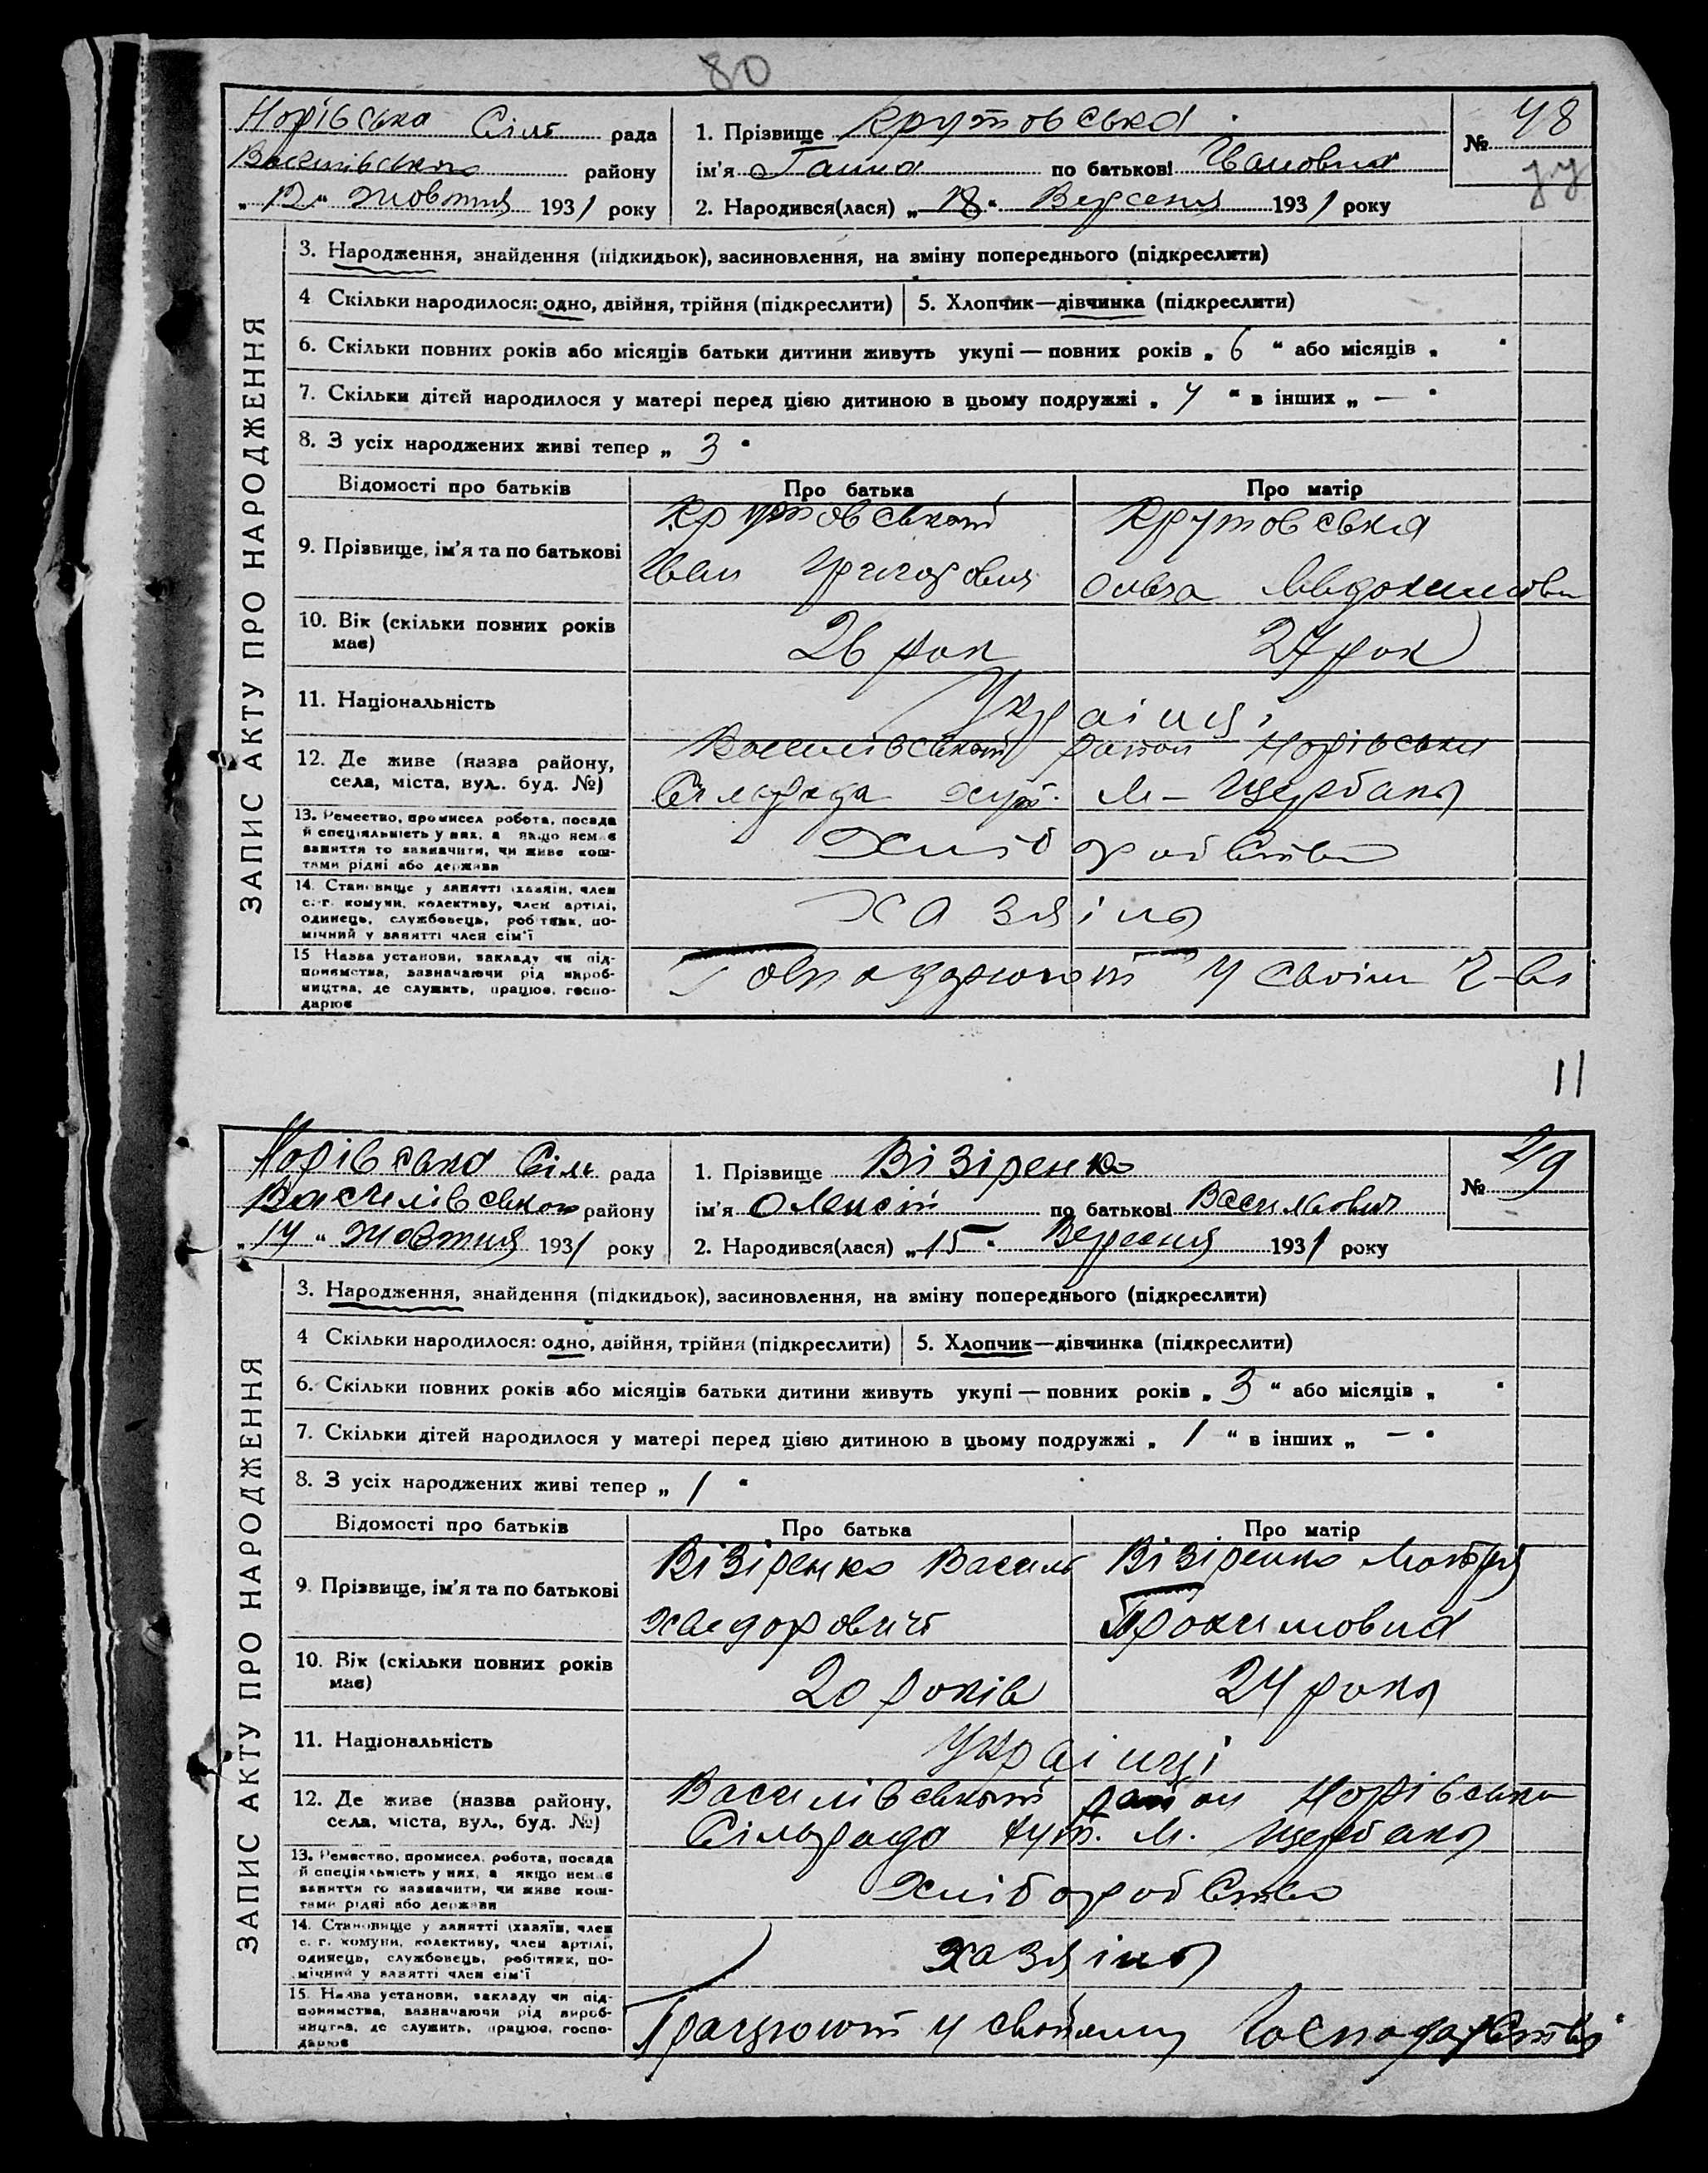 80
Норівська Сіль рада
Василівського району
„ 12 " жовтня 1931 року
1. Прізвище Крутовська
ім'я Ганна по батькові Івановна
2. Народився(лася) „ 18 " Вересня 1931 року
№ 48
ЗАПИС АКТУ ПРО НАРОДЖЕННЯ
3. Народження, знайдення (підкидьок), засиновлення, на зміну попереднього (підкреслити)
4 Скільки народилося: одно, двійня, трійня (підкреслити)
5. Хлопчик—дівчинка (підкреслити)
6. Скільки повних років або місяців батьки дитини живуть укупі — повних років „ 6 " або місяців „ "
7. Скільки дітей народилося у матері перед цією дитиною в цьому подружжі „ 4 " в інших „ — "
8. З усіх народжених живі тепер „ 3 "
Відомості про батьків Про батька Про матір
9. Прізвище, ім'я та по батькові
Крутовський
Іван Григорович
Крутовська
10. Вік (скільки повних років має)
26 рок
27 рок
11. Національність
Українці
12. Де живе (назва району, села, міста, вул. буд. №)
Василівський район Норівська
Сільрада хут. М-Щербани
13. Ремество, промисел робота, посада й спеціяльність у них, а якщо немає заняття то зазначити, чи живе коштами рідні або держави
Хліборобство
14. Становище у занятті (хазяїн, член с.-г. комуни, колективу, член артілі, одинець, службовець, робітник, помічний у занятті член сім'ї
хазяіни
15 Назва установи, закладу чи підприємства, зазначаючи рід виробництва, де служить, працює, господарює
у своім г-ві
11
Норівська Сіль рада
Василівського району
„ 14 " жовтня 1931 року
1. Прізвище Візіренко
ім'я Олексій по батькові Васильович
2. Народився(лася) „ 15 " Вересня 1931 року
№ 49
ЗАПИС АКТУ ПРО НАРОДЖЕННЯ
3. Народження, знайдення (підкидьок), засиновлення, на зміну попереднього (підкреслити)
4 Скільки народилося: одно, двійня, трійня (підкреслити)
5. Хлопчик—дівчинка (підкреслити)
6. Скільки повних років або місяців батьки дитини живуть укупі — повних років „ 3 " або місяців „ "
7. Скільки дітей народилося у матері перед цією дитиною в цьому подружжі „ 1 " в інших „ — "
8. З усіх народжених живі тепер „ 1 "
Відомості про батьків Про батька Про матір
9. Прізвище, ім'я та по батькові
Візіренко Василь
Візіренко Мотря
10. Вік (скільки повних років має)
20 років
24 роки
11. Національність
Українці
12. Де живе (назва району, села, міста, вул., буд. №)
Василівський район Норівська
Сільрада хут. М. Щербани
13. Ремество, промисел, робота, посада й спеціяльність у них, а якщо немає заняття то зазначити, чи живе коштами рідні або держави
Хліборобство
14. Становище у занятті (хазяїн, член с. г. комуни, колективу, член артілі, одинець, службовець, робітник, помічний у занятті член сім'ї
хазяіни
15. Назва установи, закладу чи підприємства, зазначаючи рід виробництва, де служить, працює, господарює
Працюють у свойому Господарстві